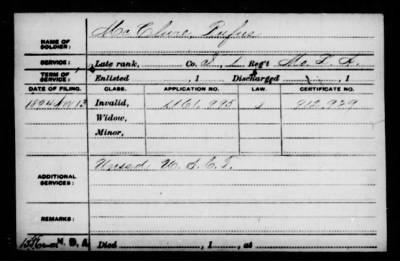 McClure, Rufus
NAME OF SOLDIER:
SERVICE: Late rank, Co. I, 1 Reg't Mo. I. H.
TERM OF SERVICE: Enlisted , 1 Discharged , 1
DATE OF FILING. CLASS. APPLICATION NO. LAW. CERTIFICATE NO.
1894 Invalid, 1161,995 912,929
Widow,
Minor,
ADDITIONAL SERVICES: U.S.C.T.
REMARKS:
Died , 1 , at